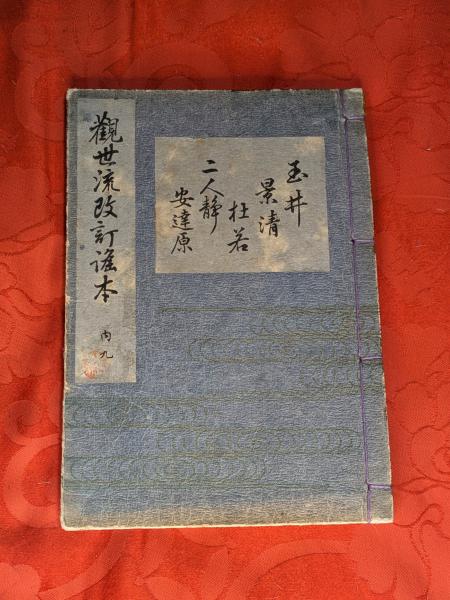 玉井
景清
杜若
二人静
安達原
觀世流改訂謠本
内九